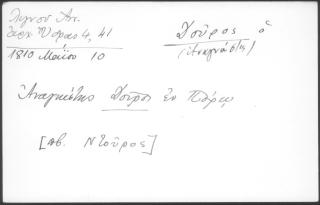 Λιγνοῦ Ἀν.
Ἀρχ. Ὕδρας 4, 41
1810 Μαΐου 10
Δοῦρος ὁ
(Ἀναγνώστης)
Ἀναγνώστης Δοῦρος ἐν Πόρῳ
[Αβ. Ντοῦρος]